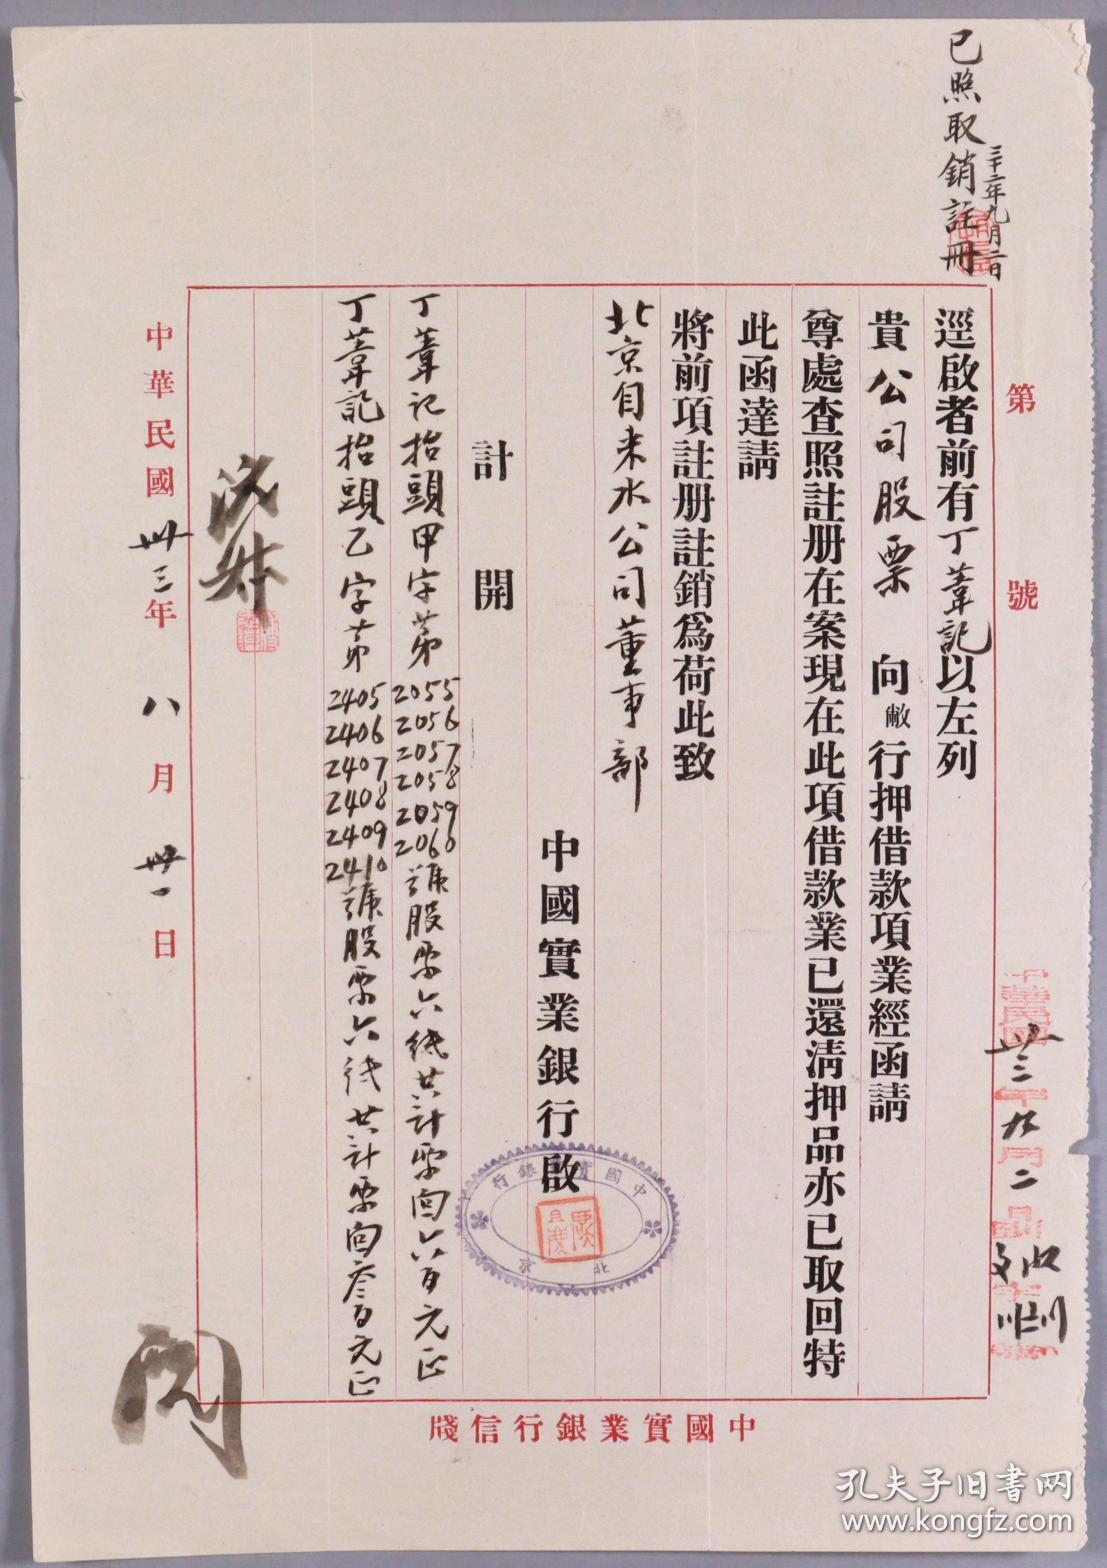 已照取銷註冊
三十三年九月二日
第 號
逕啟者前有丁葦記以左列
貴公司股票 向敝行押借款項業經函請
尊處查照註册在案現在此項借款業已還清押品亦已取回特
此函達請
將前項註册註銷爲荷此致
北京自来水公司董事部
中國實業銀行啟
計開
丁葦记抬頭甲字苐2055 2056 2057 2058 2059 2060號股票六纸共计票面六百元正
丁葦記抬頭乙字苐2405 2406 2407 2408 2409 2410號股票六纸共計票面叁百元正
中華民國卅三年八月卅一日
卅三年九月二
中國實業銀行
北京
中國實業銀行信牋
閱
孔夫子旧书网
www.kongfz.com